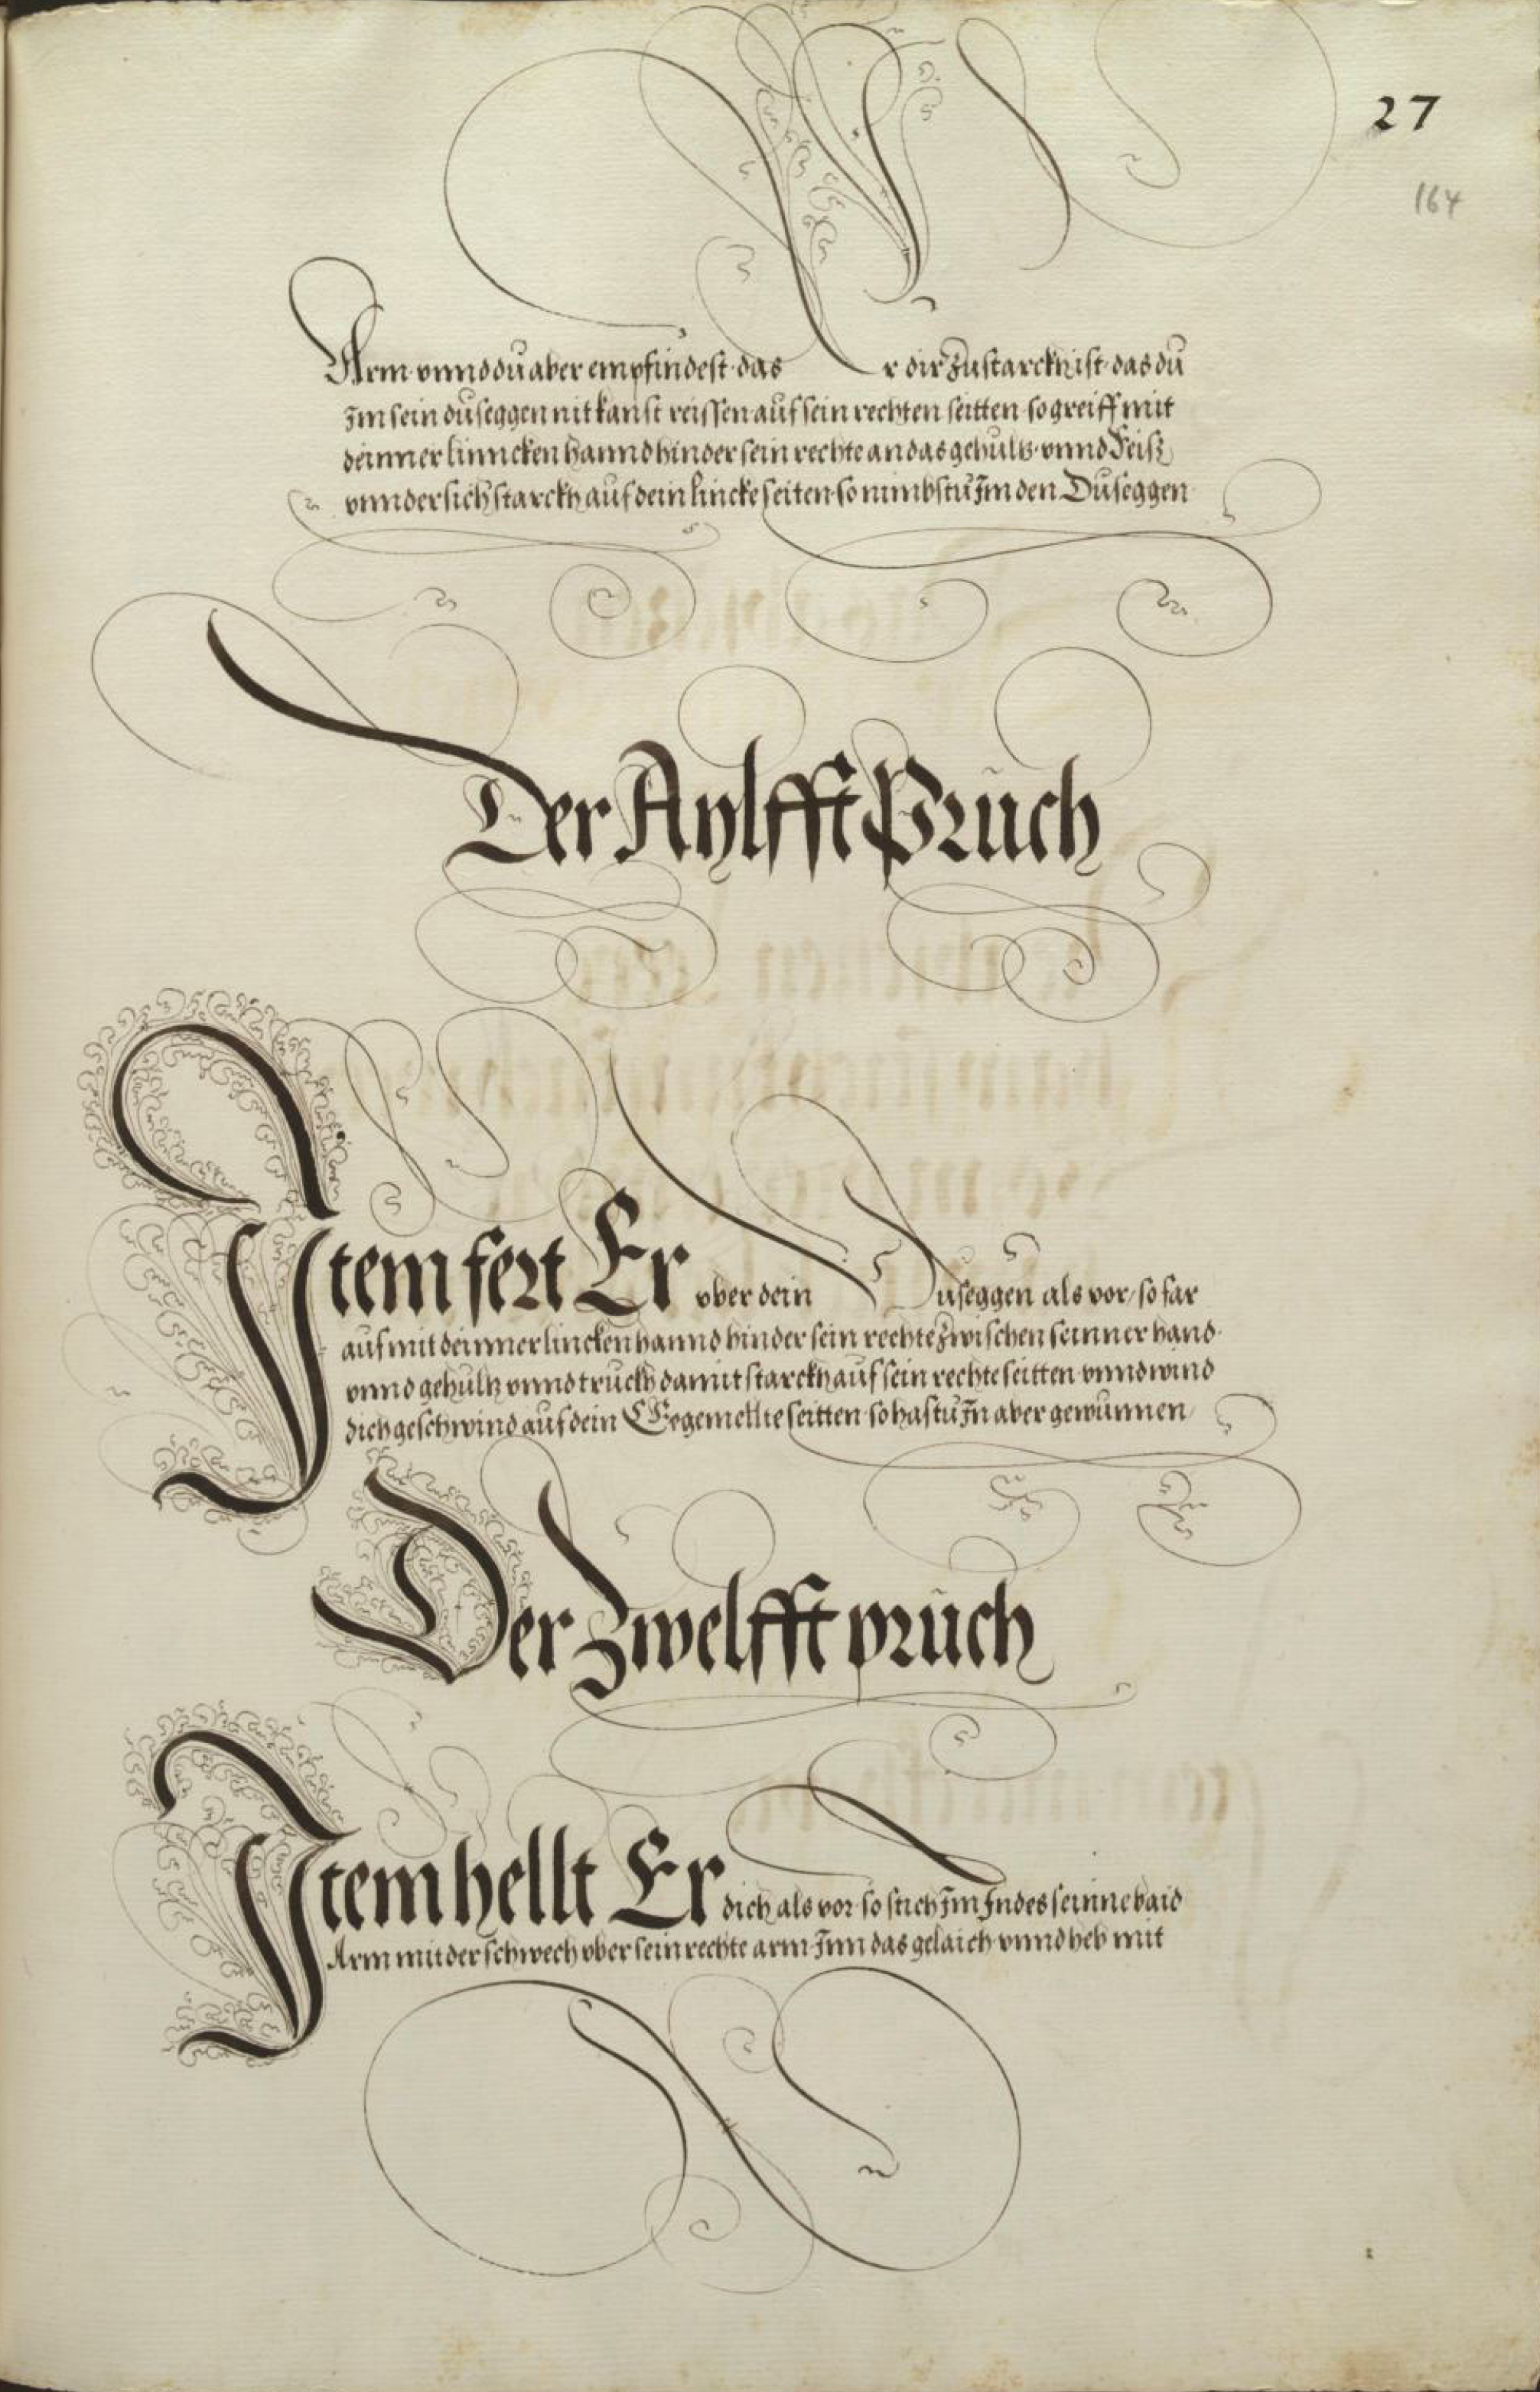 27
164
Arm vnnd du aber empfindest das Er dir zu starckh ist das du
Im sein duseggen nit kanst reissen auf sein rechten seitten so greiff mit
deinner linncken hannd hinder sein rechte an das gehultz vnnd Reiß
vnnder sich starckh auf dein lincke seiten so nimbstu Im den Duseggen
Der Aylfft Pruch
Item fert Er vber dein Duseggen als vor / so far
auf mit deinner lincken hannd hinder sein rechte zwischen seinner hand
vnnd gehultz vnnd truckh damit starckh auf sein rechte seitten vnnd wind
dich geschwind auf dein seitten so hastu In aber gewunnen
Der Zwelfft pruch
Item hellt Er dich als vor so stich Im Indes seinne baid
Arm mit der schwech vber sein rechte arm Inn das gelaich vnnd heb mit